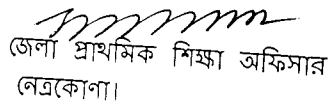 জেলা প্রাথমিক শিক্ষা অফিসার
নেত্রকোনা।